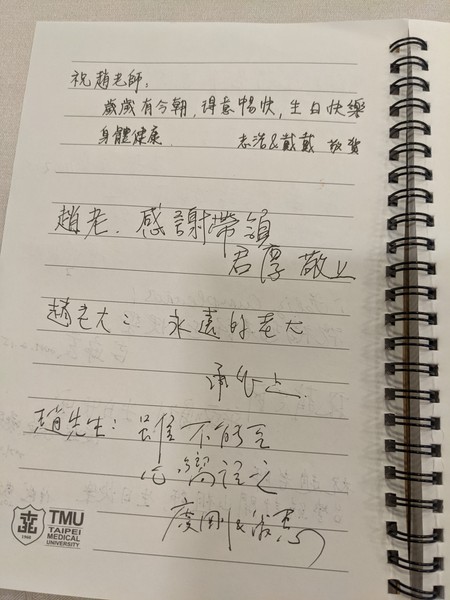 祝趙老師:
歲歲有今朝,得意暢快,生日快樂
身體健康. 志浩&戴戴 敬賀
趙老.感謝帶領
君厚 敬上
趙老大:永遠的老大
上.
趙先生:雖不能至
心嚮往之
慶剛&淑惠
TMU
TAIPEI
MEDICAL
UNIVERSITY
1960